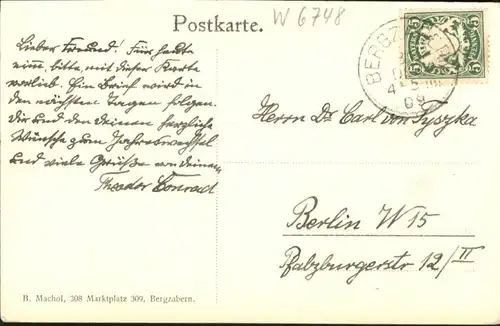 Postkarte.
W 6748
Lieber Freund! Für heute
nimm bitte mit dieser Karte
vorlieb. Ein Brief wird in
den nächsten Tagen folgen.
Dir und den Deinen herzliche
Wünsche zum Jahreswechsel
und viele Grüße von Deinem
Theodor Conrad
BERGZ
09
5 5
5 5
Herrn Dr. Carl von Tyszka
Berlin W 15
Pfalzburgerstr 12/II
B. Machol, 308 Marktplatz 309, Bergzabern.